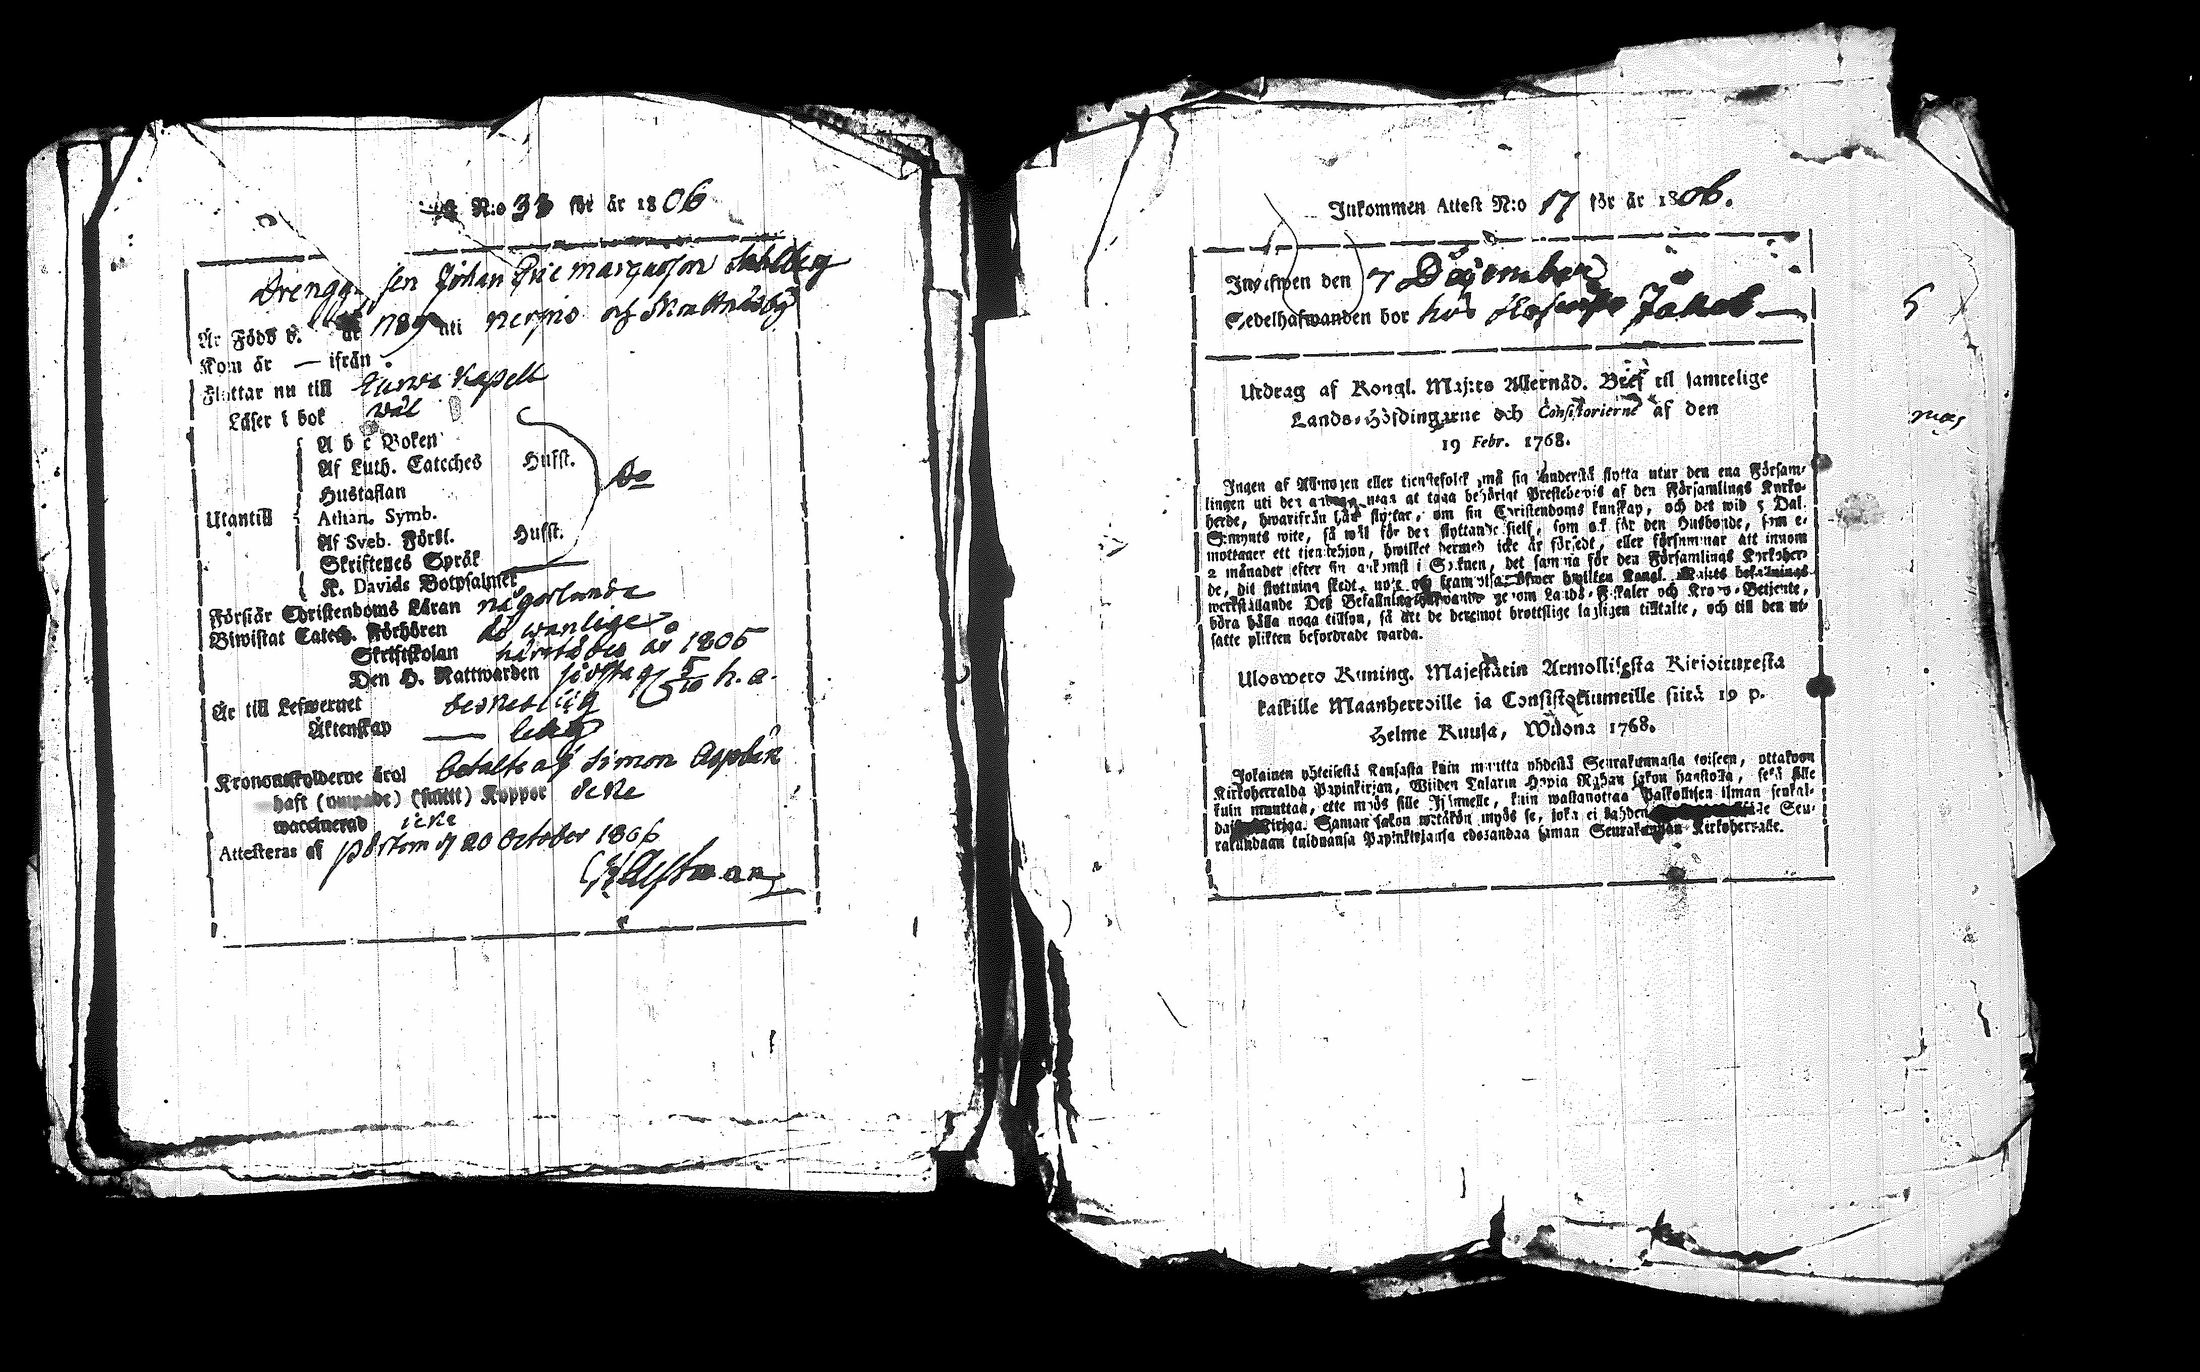 N:o 33 för år 1806
Drengen Johan Eric Marqusson Sahlberg
Är Född d. år 1789 uti Nerpio af
Kom år — ifrån
Flyttar nu till Kapell
Läser i bok wäl
A b c Boken
Af Luth. Cateches Husst.
Hustaflan
Utantill
Athan. Symb.
Af Sveb. Förkl. Husst.
Skriftenes Språk
K. Davids Botpsalmer
Förstår Christendoms Läran någorlunda
Biwistat Catech. Förhören wanlige
Skriftskolan år 1805
Den H. Nattwarden sidsta g 5/10 h. a.
Är till Lefwernet beskedlig
Äktenskap — ledig
Kronoutskylderne äro betalte af Simon
haft (ympade) (smitt) Koppor icke
waccinerad icke
Attesteras af Pörtom d 20 October 1806
Inkommen Attest N:o 17 för år 1806.
Inskrifwen den 7 December
Sedelhafwanden bor hos Jakob —
Utdrag af Kongl. Maj:ts Allernåd. Bref til samtelige
Lands-Höfdingarne och Consistorierne af den
19 Febr. 1768.
Ingen af Allmogen eller tienstefolck må sig understå flytta utur den ena Försam-
lingen uti den andra, utan at taga behörigt Prestebevis af den Församlings Kyrko-
herde, hwarifrån han flyttar, om sin Christendoms kunskap, och det wid 5 Dal.
S:mynts wite, så wäl för den flyttande sielf, som ock för den Husbonde, som e-
mottager ett tienstehion, hwilket dermed icke är försedt, eller försummar att innom
2 månader efter sin ankomst i Socknen, det samma för den Församlings Kyrkoher-
de, dit flyttning skedt, upte och framwisa. Öfwer hwilken Kongl. Maj:ts befallnings
werkställande Deß Befallningshafwande genom Lands-Fiskaler och Krono-Betjente,
böra hålla noga tillsyn, så att de deremot brottslige lagligen tilltalte, och till den ut-
satte plikten befordrade warda.
Uloswero Kuning. Majestätin Armollisesta Kirjoituxesta
kaikille Maanherroille ja Consistoriumeille siitä 19 p.
Helme Kuusa, Wuona 1768.
Jokainen yhteisestä Kansasta kuin muutta yhdestä Seurakunnasta toiseen, ottakoon
Kirkoherralda Papinkirjan, Wiiden Talarin Hopia Rahan sakon haastolla, sekä sille
kuin muuttaa, ette myös sille Isännelle, kuin wastanottaa Palkollisen ilman senkal-
daista Kirjaa. Saman sakon wetäkön myös se, joka ei kahden Seu-
rakundaan tulduansa Papinkirjansa edesandaa saman Seurakunnan Kirkoherralle.
5